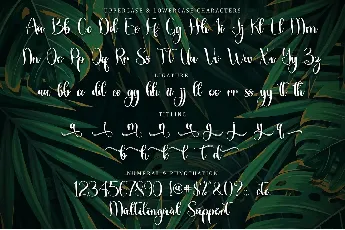 UPPERCASE & LOWERCASE CHARACTERS
Aa Bb Cc Dd Ee Ff Gg Hh Ii Jj Kk Ll Mm
Nn Oo Pp Qq Rr Ss Tt Uu Vv Ww Xx Yy Zz
LIGATURE
aa bb cc dd ee gg hh ii jj ll oo rr ss yy tt th
TITLING
b h k l t d
NUMERAL & PUNCTUATION
1234567890
Multilingual Support